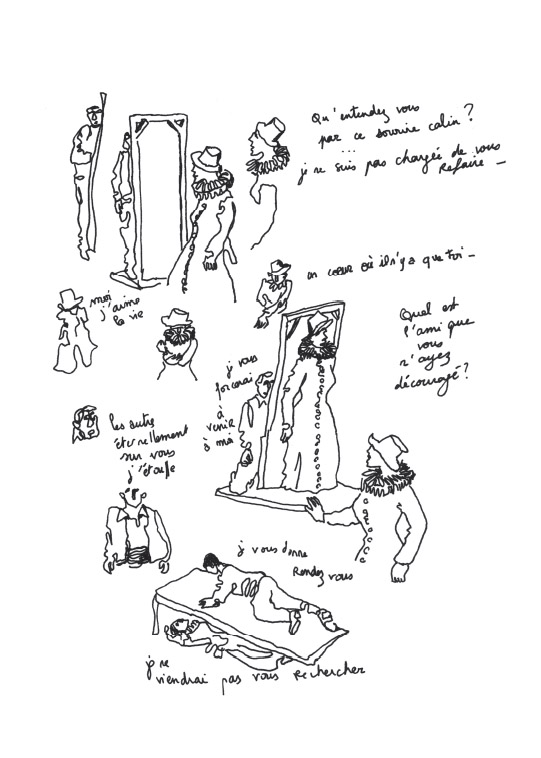 Qu'entendez vous
par ce sourire calin ?
...
je ne suis pas chargée de vous
Refaire –
un cœur où il n'y a que toi –
moi
j'aime
la vie
Quel est
l'ami que
vous
n'ayez
découragé ?
je vous
forcerai
à
venir
à moi
les autres
éternellement
sur vous
j'étouffe
je vous donne
Rendez vous
je ne
viendrai pas vous Rechercher